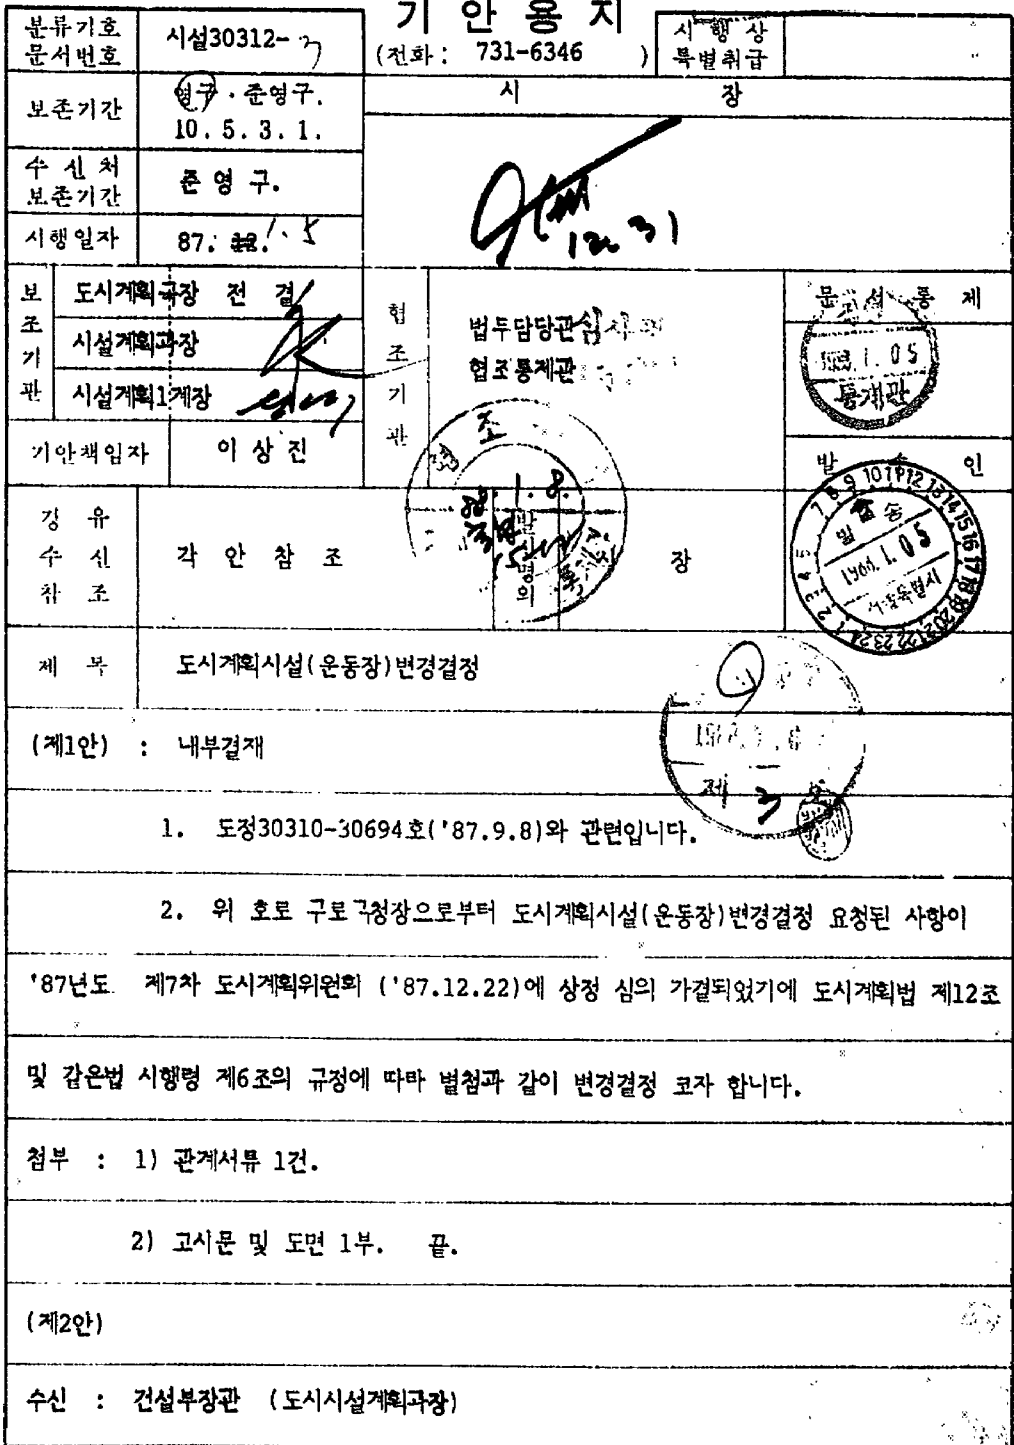 기 안 용 지
분류기호
문서번호
시설30312- 3
(전화 : 731-6346 )
시 행 상
특별취급
보존기간
영구 . 준영구.
10. 5. 3. 1.
시 장
수 신 처
보존기간
준 영 구.
12. 31
시행일자
87. 1. 5
보조기관
도시계획국장 전 결
시설계획과장
시설계획1계장
협조기관
법무담당관
협조통제관
문 서 통 제
1.05
통제관
기안책임자
이 상 진
발 송 인
경 유
수 신
참 조
각 안 참 조
발신명의
장
1. 8.
발 송
1.05
제 목
도시계획시설(운동장)변경결정
(제1안) : 내부결재
제 3
1. 도정30310-30694호('87.9.8)와 관련입니다.
2. 위 호로 구로구청장으로부터 도시계획시설(운동장)변경결정 요청된 사항이
'87년도 제7차 도시계획위원회 ('87.12.22)에 상정 심의 가결되었기에 도시계획법 제12조
및 같은법 시행령 제6조의 규정에 따라 별첨과 같이 변경결정 코자 합니다.
첨부 : 1) 관계서류 1건.
2) 고시문 및 도면 1부. 끝.
(제2안)
수신 : 건설부장관 (도시시설계획과장)